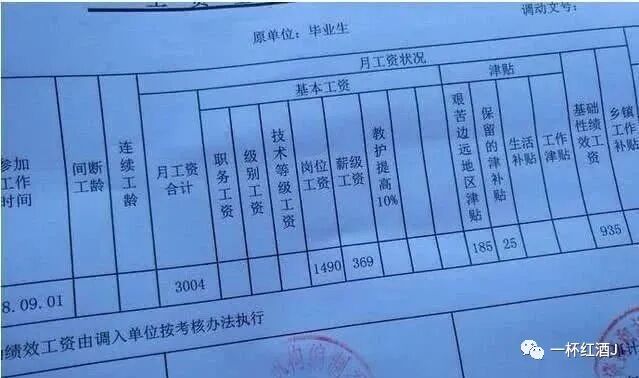 原单位：毕业生
调动文号：
月工资状况
基本工资
津贴
参加工作时间
间断工龄
连续工龄
月工资合计
职务工资
级别工资
技术等级工资
岗位工资
薪级工资
教护提高10%
艰苦边远地区津贴
保留的津补贴
生活补贴
工作津贴
基础性绩效工资
乡镇工作补贴
8.09.01
3004
1490
369
185
25
935
绩效工资由调入单位按考核办法执行
一杯红酒J